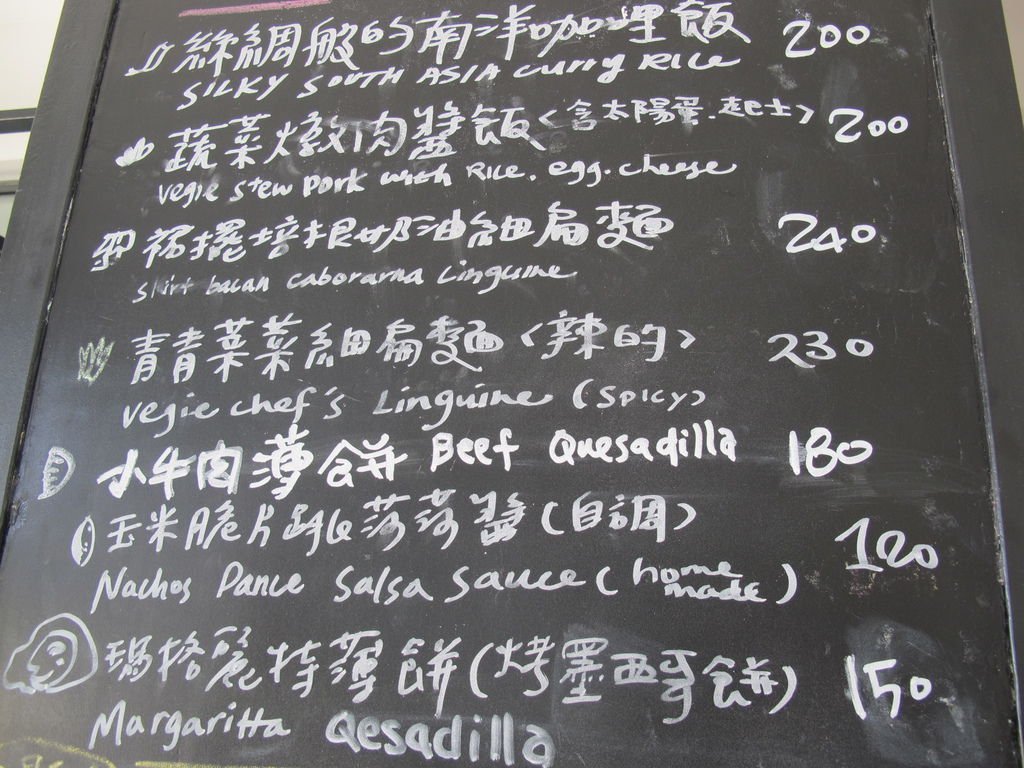 絲綢般的南洋咖哩飯 200
SILKY SOUTH ASIA curry RICE
蔬菜燉肉醬飯<含太陽蛋.起士> 200
vegie stew pork with Rice. egg. cheese
裙擺培根奶油細扁麵 240
skirt bacan caborarna Linguine
青青菜菜細扁麵<辣的> 230
vegie chef's Linguine (SPICY)
小牛肉薄餅 Beef Quesadilla 180
玉米脆片跳莎莎醬(自調) 120
Nachos Dance Salsa Sauce (home made)
瑪格麗特薄餅(烤墨西哥餅) 150
Margaritta Qesadilla